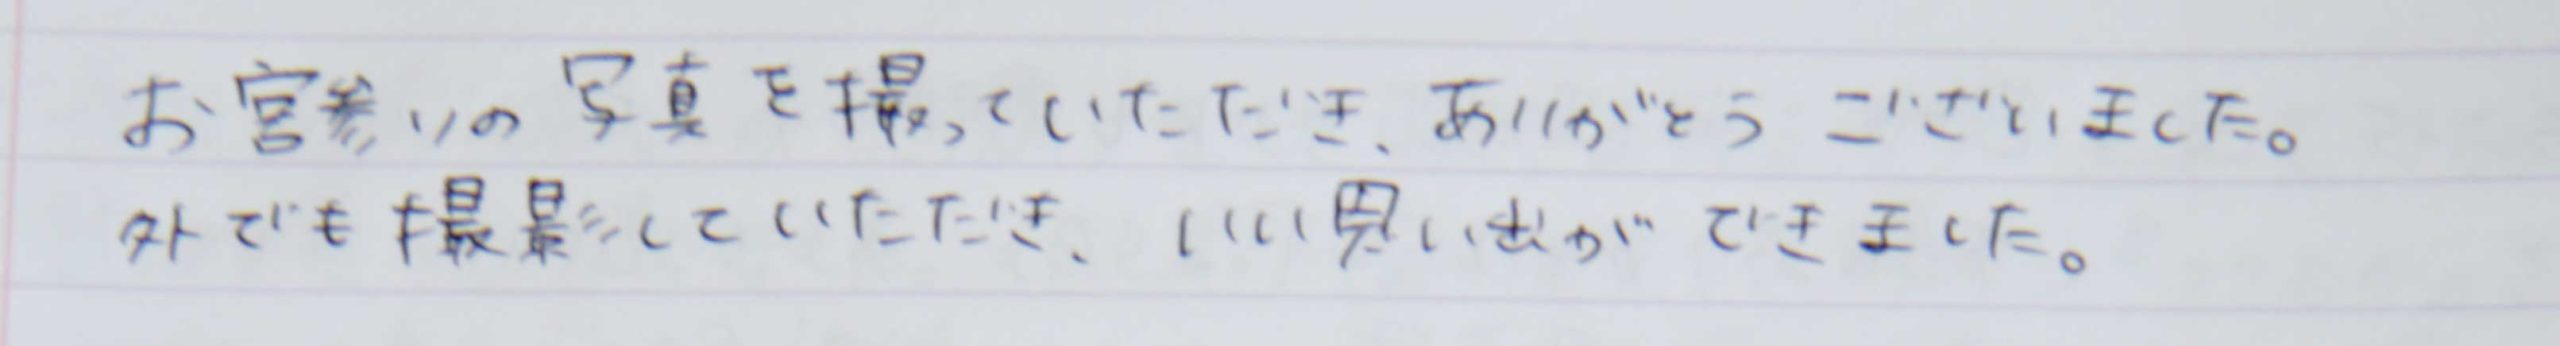 お宮参りの写真を撮っていただき、ありがとうございました。
外でも撮影していただき、いい思い出ができました。